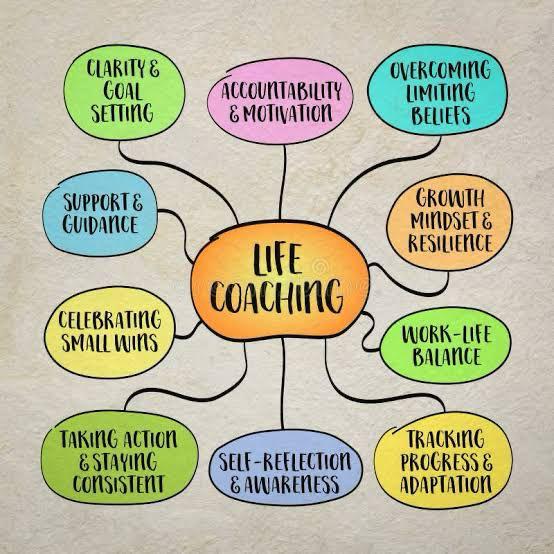 CLARITY &
GOAL
SETTING
ACCOUNTABILITY
& MOTIVATION
OVERCOMING
LIMITING
BELIEFS
SUPPORT &
GUIDANCE
GROWTH
MINDSET &
RESILIENCE
LIFE
COACHING
CELEBRATING
SMALL WINS
WORK-LIFE
BALANCE
TAKING ACTION
& STAYING
CONSISTENT
SELF-REFLECTION
& AWARENESS
TRACKING
PROGRESS &
ADAPTATION